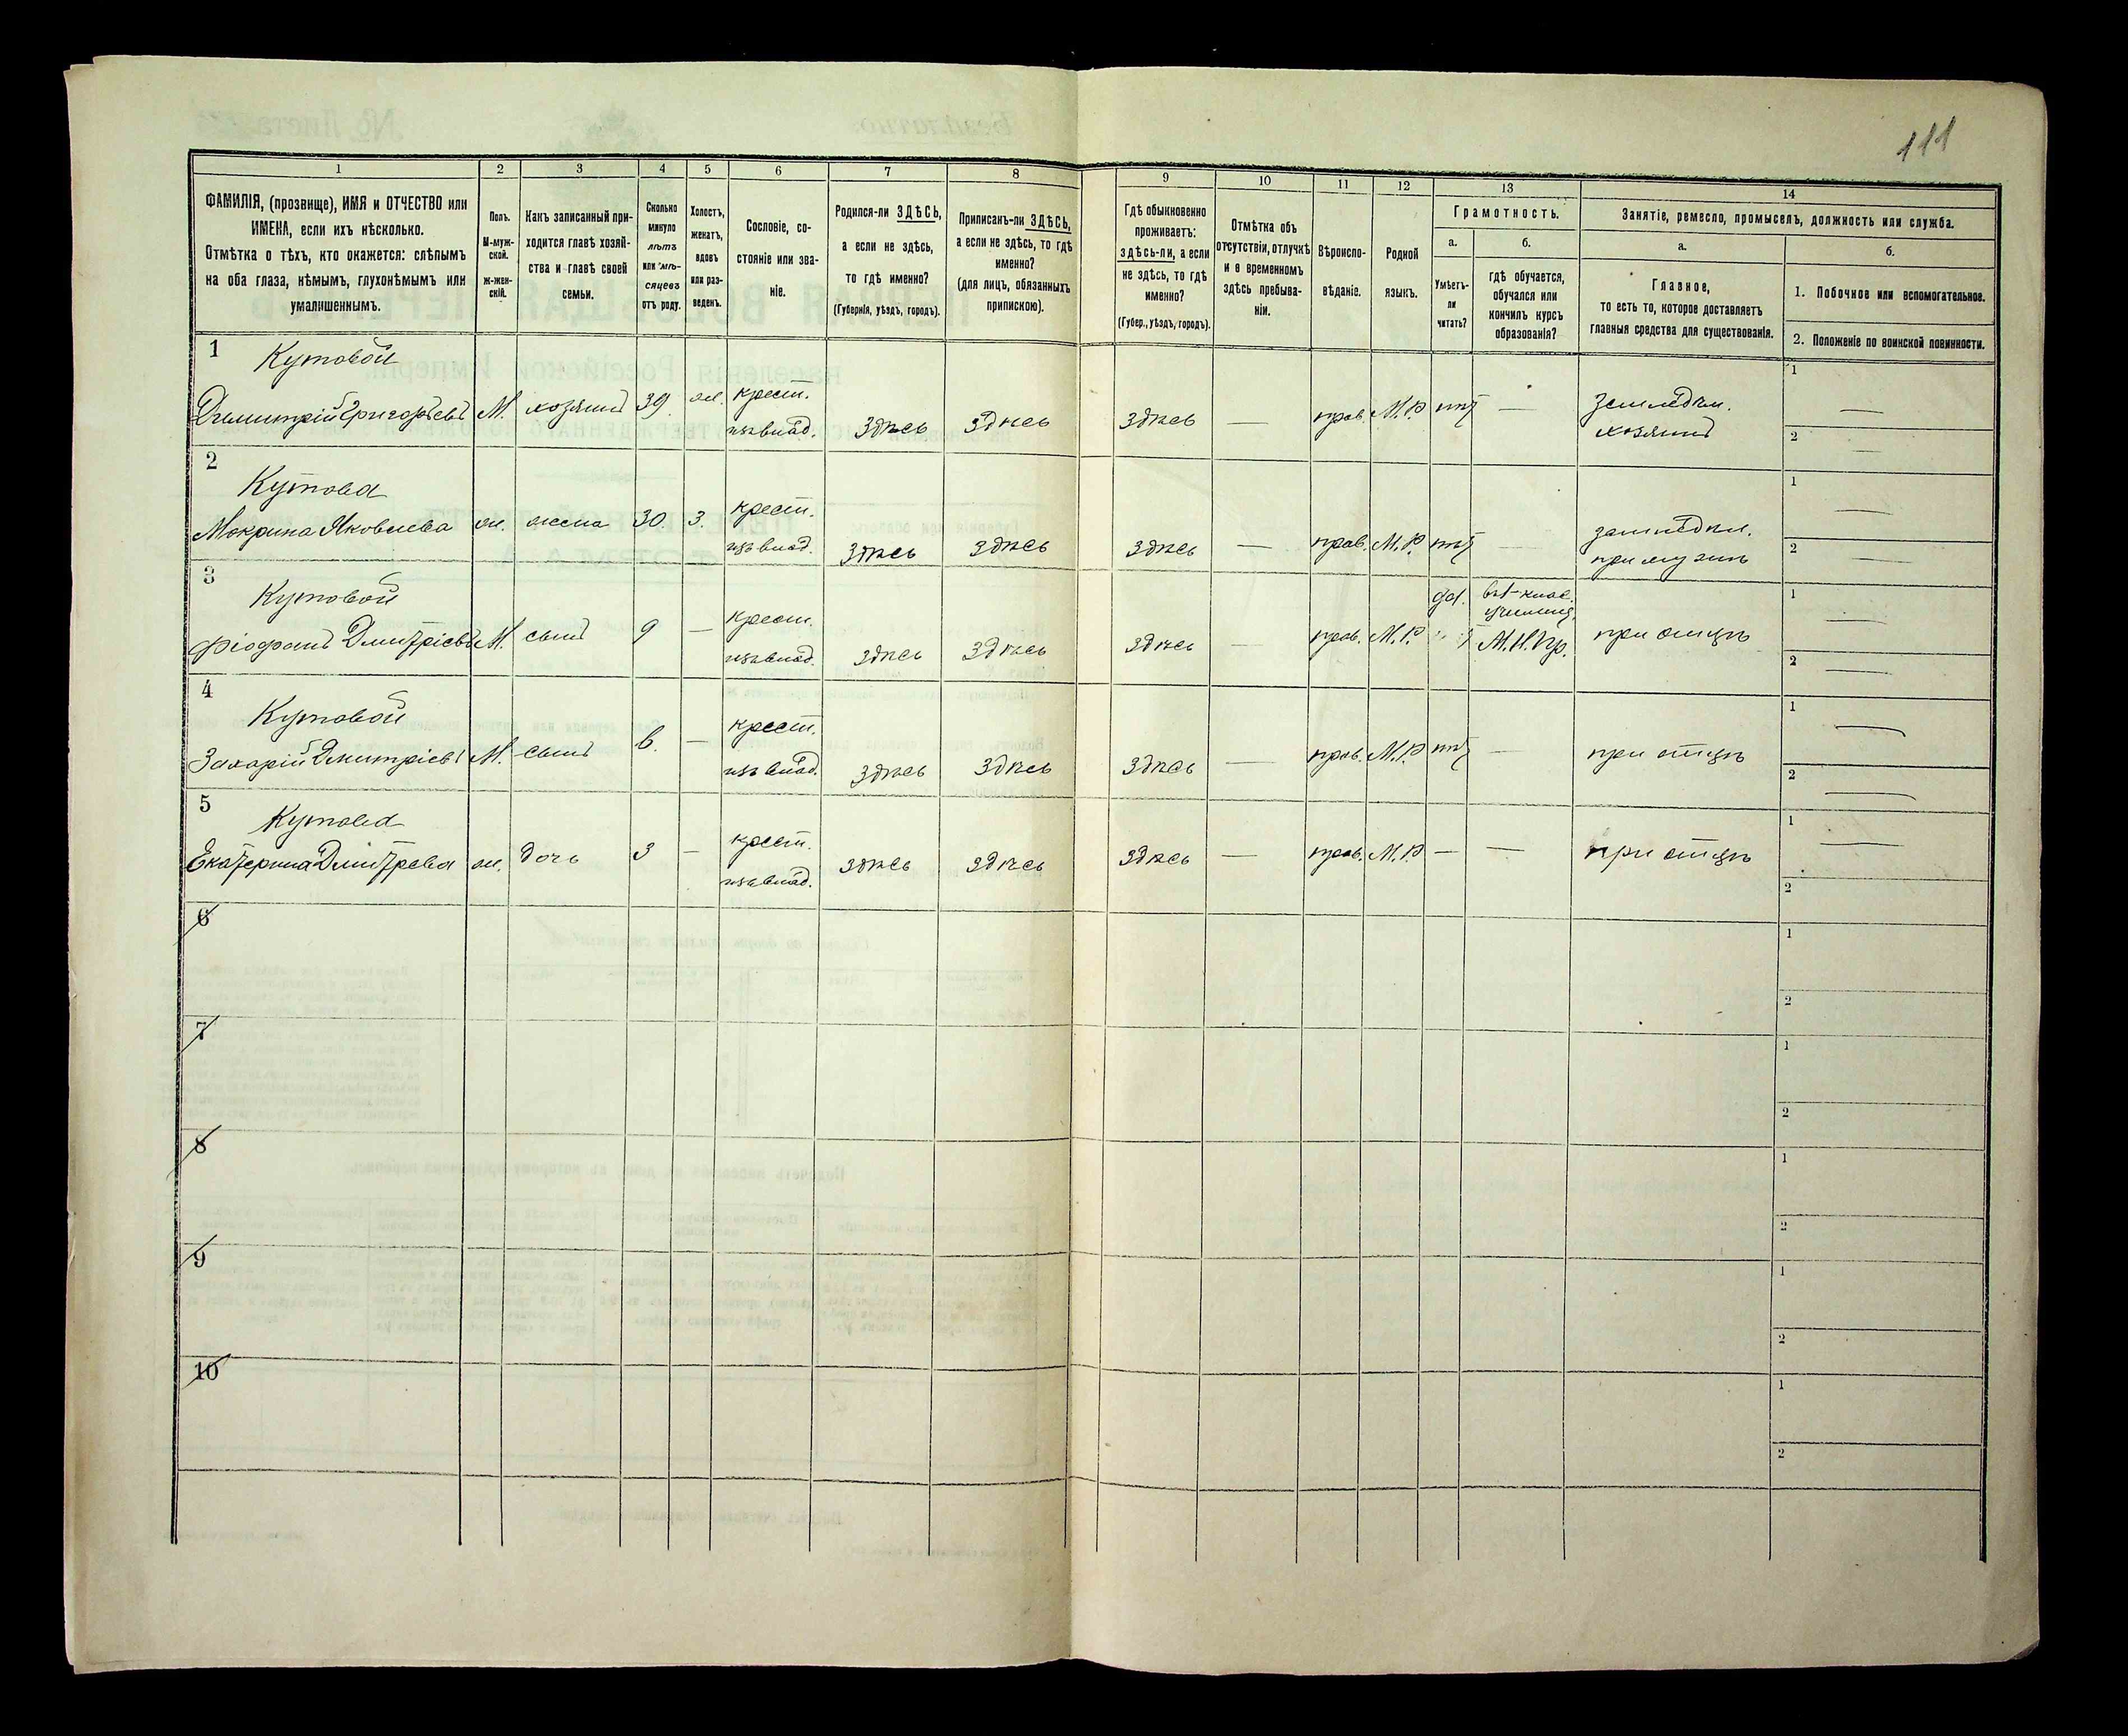 111
1 2 3 4 5 6 7 8 9 10 11 12 13 14
ФАМИЛІЯ, (прозвище), ИМЯ и ОТЧЕСТВО или
ИМЕНА, если ихъ нѣсколько.
Отмѣтка о тѣхъ, кто окажется: слѣпымъ
на оба глаза, нѣмымъ, глухонѣмымъ или
умалишеннымъ.
Полъ.
М-муж-
ской.
ж-жен-
скій.
Какъ записанный при-
ходится главѣ хозяй-
ства и главѣ своей
семьи.
Сколько
минуло
лѣтъ
или мѣ-
сяцевъ
отъ роду.
Холостъ,
женатъ,
вдовъ
или раз-
веденъ.
Сословіе, со-
стояніе или зва-
ніе.
Родился-ли ЗДѢСЬ,
а если не здѣсь,
то гдѣ именно?
(Губернія, уѣздъ, городъ).
Приписанъ-ли ЗДѢСЬ,
а если не здѣсь, то гдѣ
именно?
(для лицъ, обязанныхъ
припискою).
Гдѣ обыкновенно
проживаетъ:
здѣсь-ли, а если
не здѣсь, то гдѣ
именно?
(Губер., уѣздъ, городъ).
Отмѣтка объ
отсутствіи, отлучкѣ
и о временномъ
здѣсь пребыва-
ніи.
Вѣроиспо-
вѣданіе.
Родной
языкъ.
Грамотность.
а.
Умѣетъ-
ли
читать?
б.
гдѣ обучается,
обучался или
кончилъ курсъ
образованія?
Занятіе, ремесло, промыселъ, должность или служба.
а.
Главное,
то есть то, которое доставляетъ
главныя средства для существованія.
б.
1. Побочное или вспомогательное.
2. Положеніе по воинской повинности.
1 Кутовой
Димитрій Григорьевъ М. хозяинъ 39 ж. крест. здѣсь здѣсь здѣсь — прав. М.Р. нѣтъ — земледѣл. 1 —
из влад. хозяинъ 2 —
2 Кутова
Мокрина Яковлева ж. жена 30. з. крест. здѣсь здѣсь здѣсь — прав. М.Р. нѣтъ — земледѣл. 1 —
из влад. при мужѣ 2 —
3 Кутовой
Фіофанъ Дмитріевъ М. сынъ 9 — крест. здѣсь здѣсь здѣсь — прав. М.Р. да. въ 1-клас. при отцѣ 1 —
из влад. училищ. 2 —
М.Н.Пр.
4 Кутовой
Захарій Дмитріевъ М. сынъ 6. — крест. здѣсь здѣсь здѣсь — прав. М.Р. нѣтъ — при отцѣ 1 —
из влад. 2 —
5 Кутова
Екатерина Дмитрева ж. дочь 3 — крест. здѣсь здѣсь здѣсь — прав. М.Р — — при отцѣ 1 —
из влад. 2
6 1
2
7 1
2
8 1
2
9 1
2
10 1
2